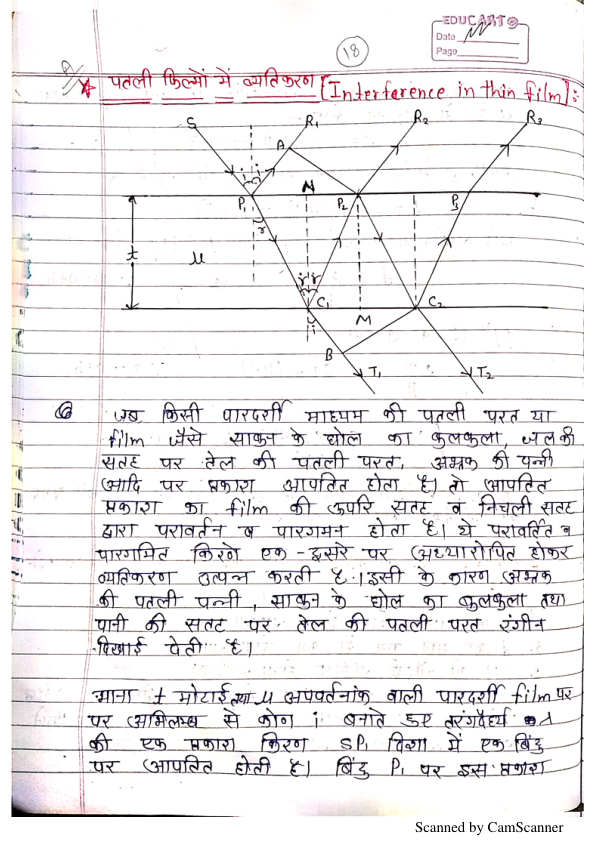 EDUCART
Date
Page
18
पतली फिल्मों में व्यतिकरण [Interference in thin film]:
S R₁ R₂ R₃
A
i i
P₁ N P₂ P₃
r
t μ
r r
C₁ C₂
i M
B
T₁ T₂
जब किसी पारदर्शी माध्यम की पतली परत या
film जैसे साबुन के घोल का बुलबुला, जल की
सतह पर तेल की पतली परत, अभ्रक की पन्नी
आदि पर प्रकाश आपतित होता है। तो आपतित
प्रकाश का film की ऊपरि सतह व निचली सतह
द्वारा परावर्तन व पारगमन होता है। ये परावर्तित व
पारगमित किरणे एक-दूसरे पर अध्यारोपित होकर
व्यतिकरण उत्पन्न करती है। इसी के कारण अभ्रक
की पतली पन्नी, साबुन के घोल का बुलबुला तथा
पानी की सतह पर तेल की पतली परत रंगीन
दिखाई देती है।
माना t मोटाई तथा μ अपवर्तनांक वाली पारदर्शी film पर
पर अभिलम्ब से कोण i बनाते हुए तरंगदैर्ध्य λ
की एक प्रकाश किरण SP₁ दिशा में एक बिंदु
पर आपतित होती है। बिंदु P₁ पर इस प्रकाश
Scanned by CamScanner